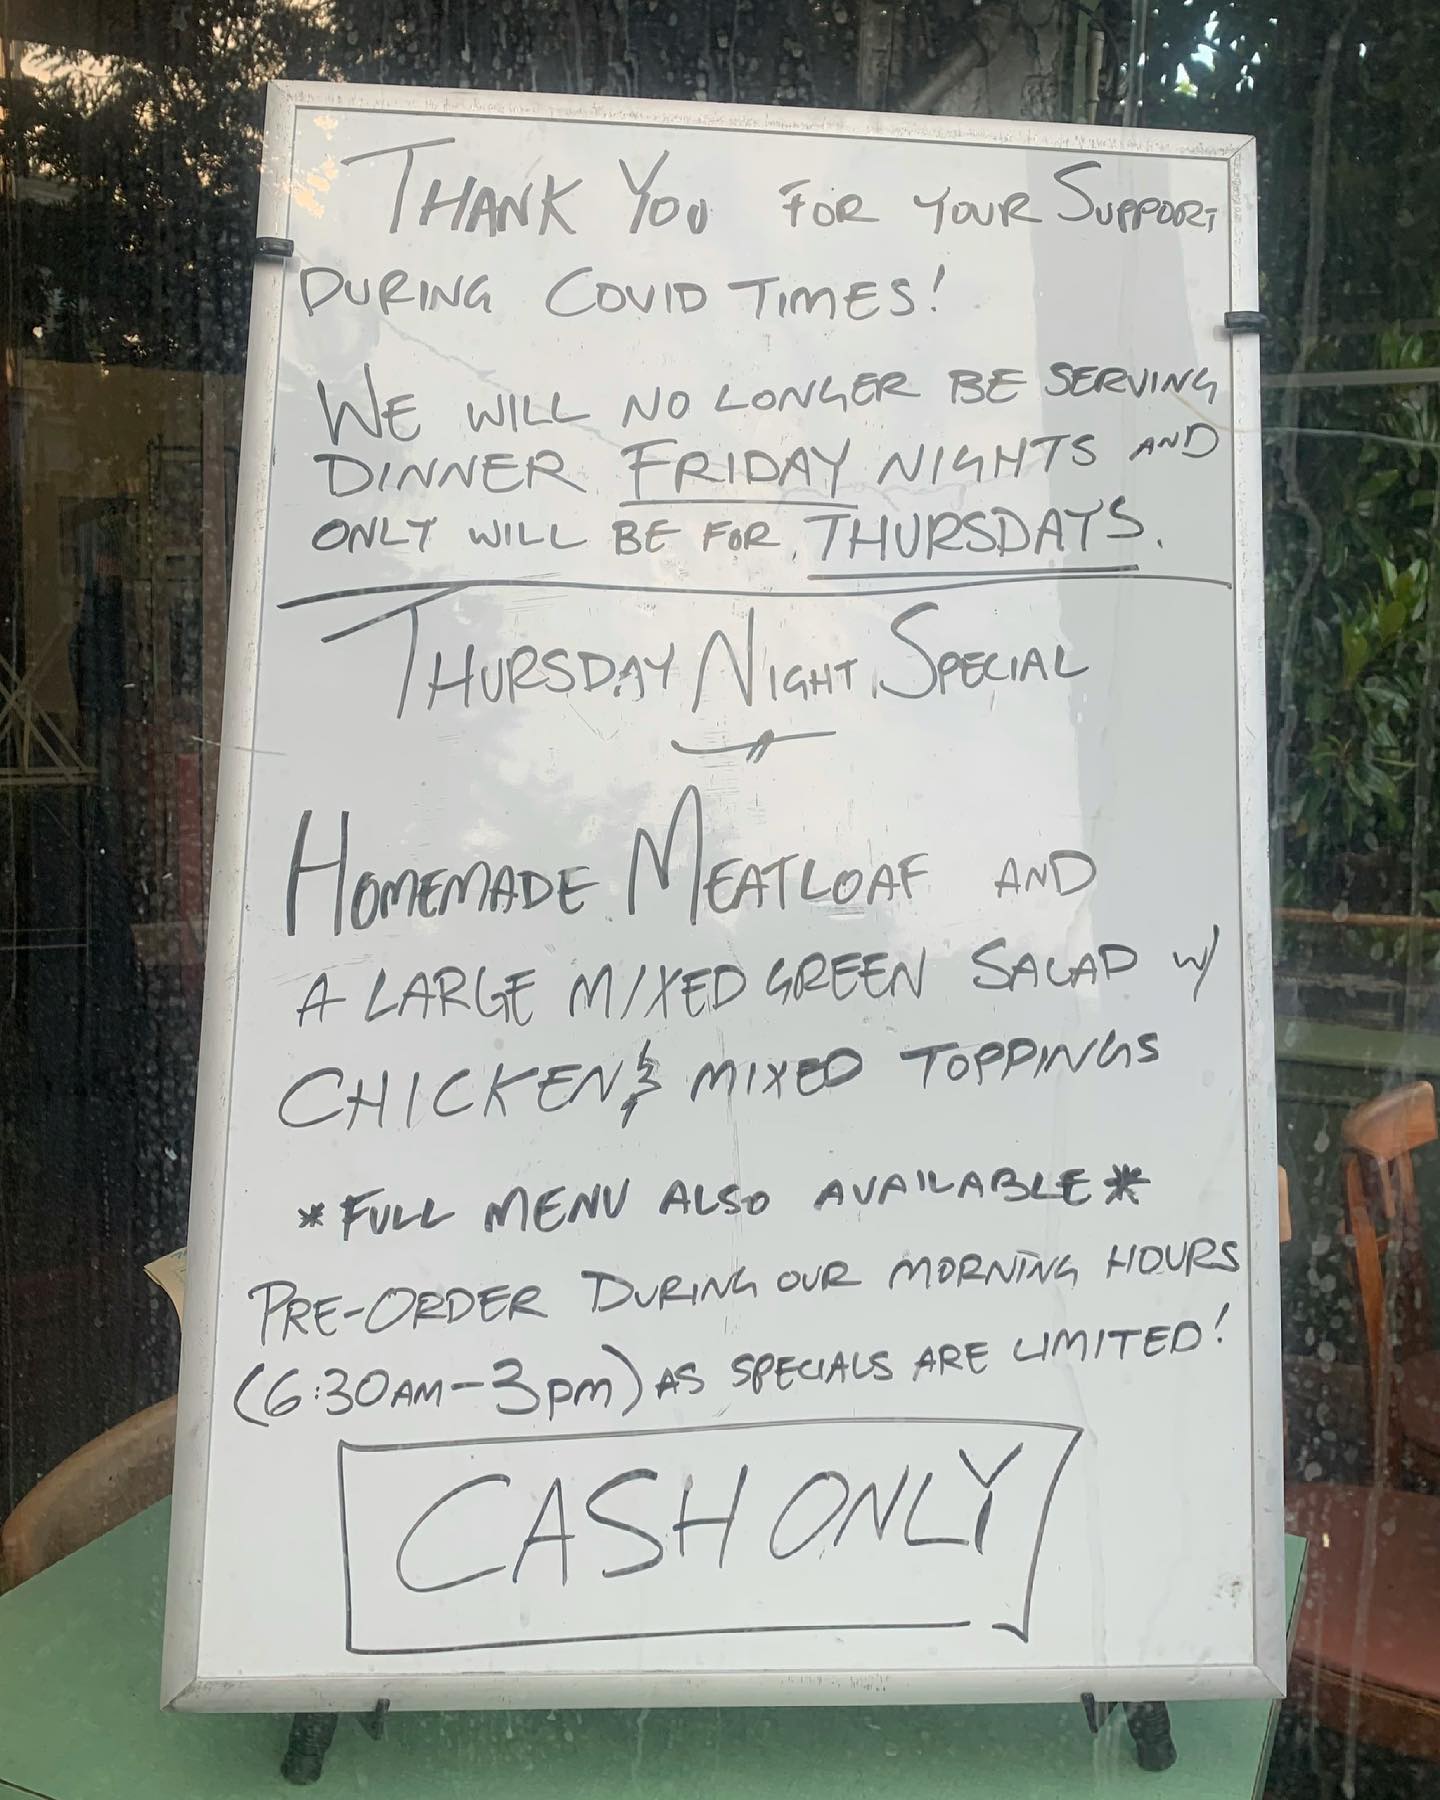 THANK YOU FOR YOUR SUPPORT
DURING COVID TIMES!
WE WILL NO LONGER BE SERVING
DINNER FRIDAY NIGHTS AND
ONLY WILL BE FOR THURSDAYS.
THURSDAY NIGHT SPECIAL
HOMEMADE MEATLOAF AND
A LARGE MIXED GREEN SALAD W/
CHICKEN & MIXED TOPPINGS
*FULL MENU ALSO AVAILABLE*
PRE-ORDER DURING OUR MORNING HOURS
(6:30AM-3PM) AS SPECIALS ARE LIMITED!
CASH ONLY